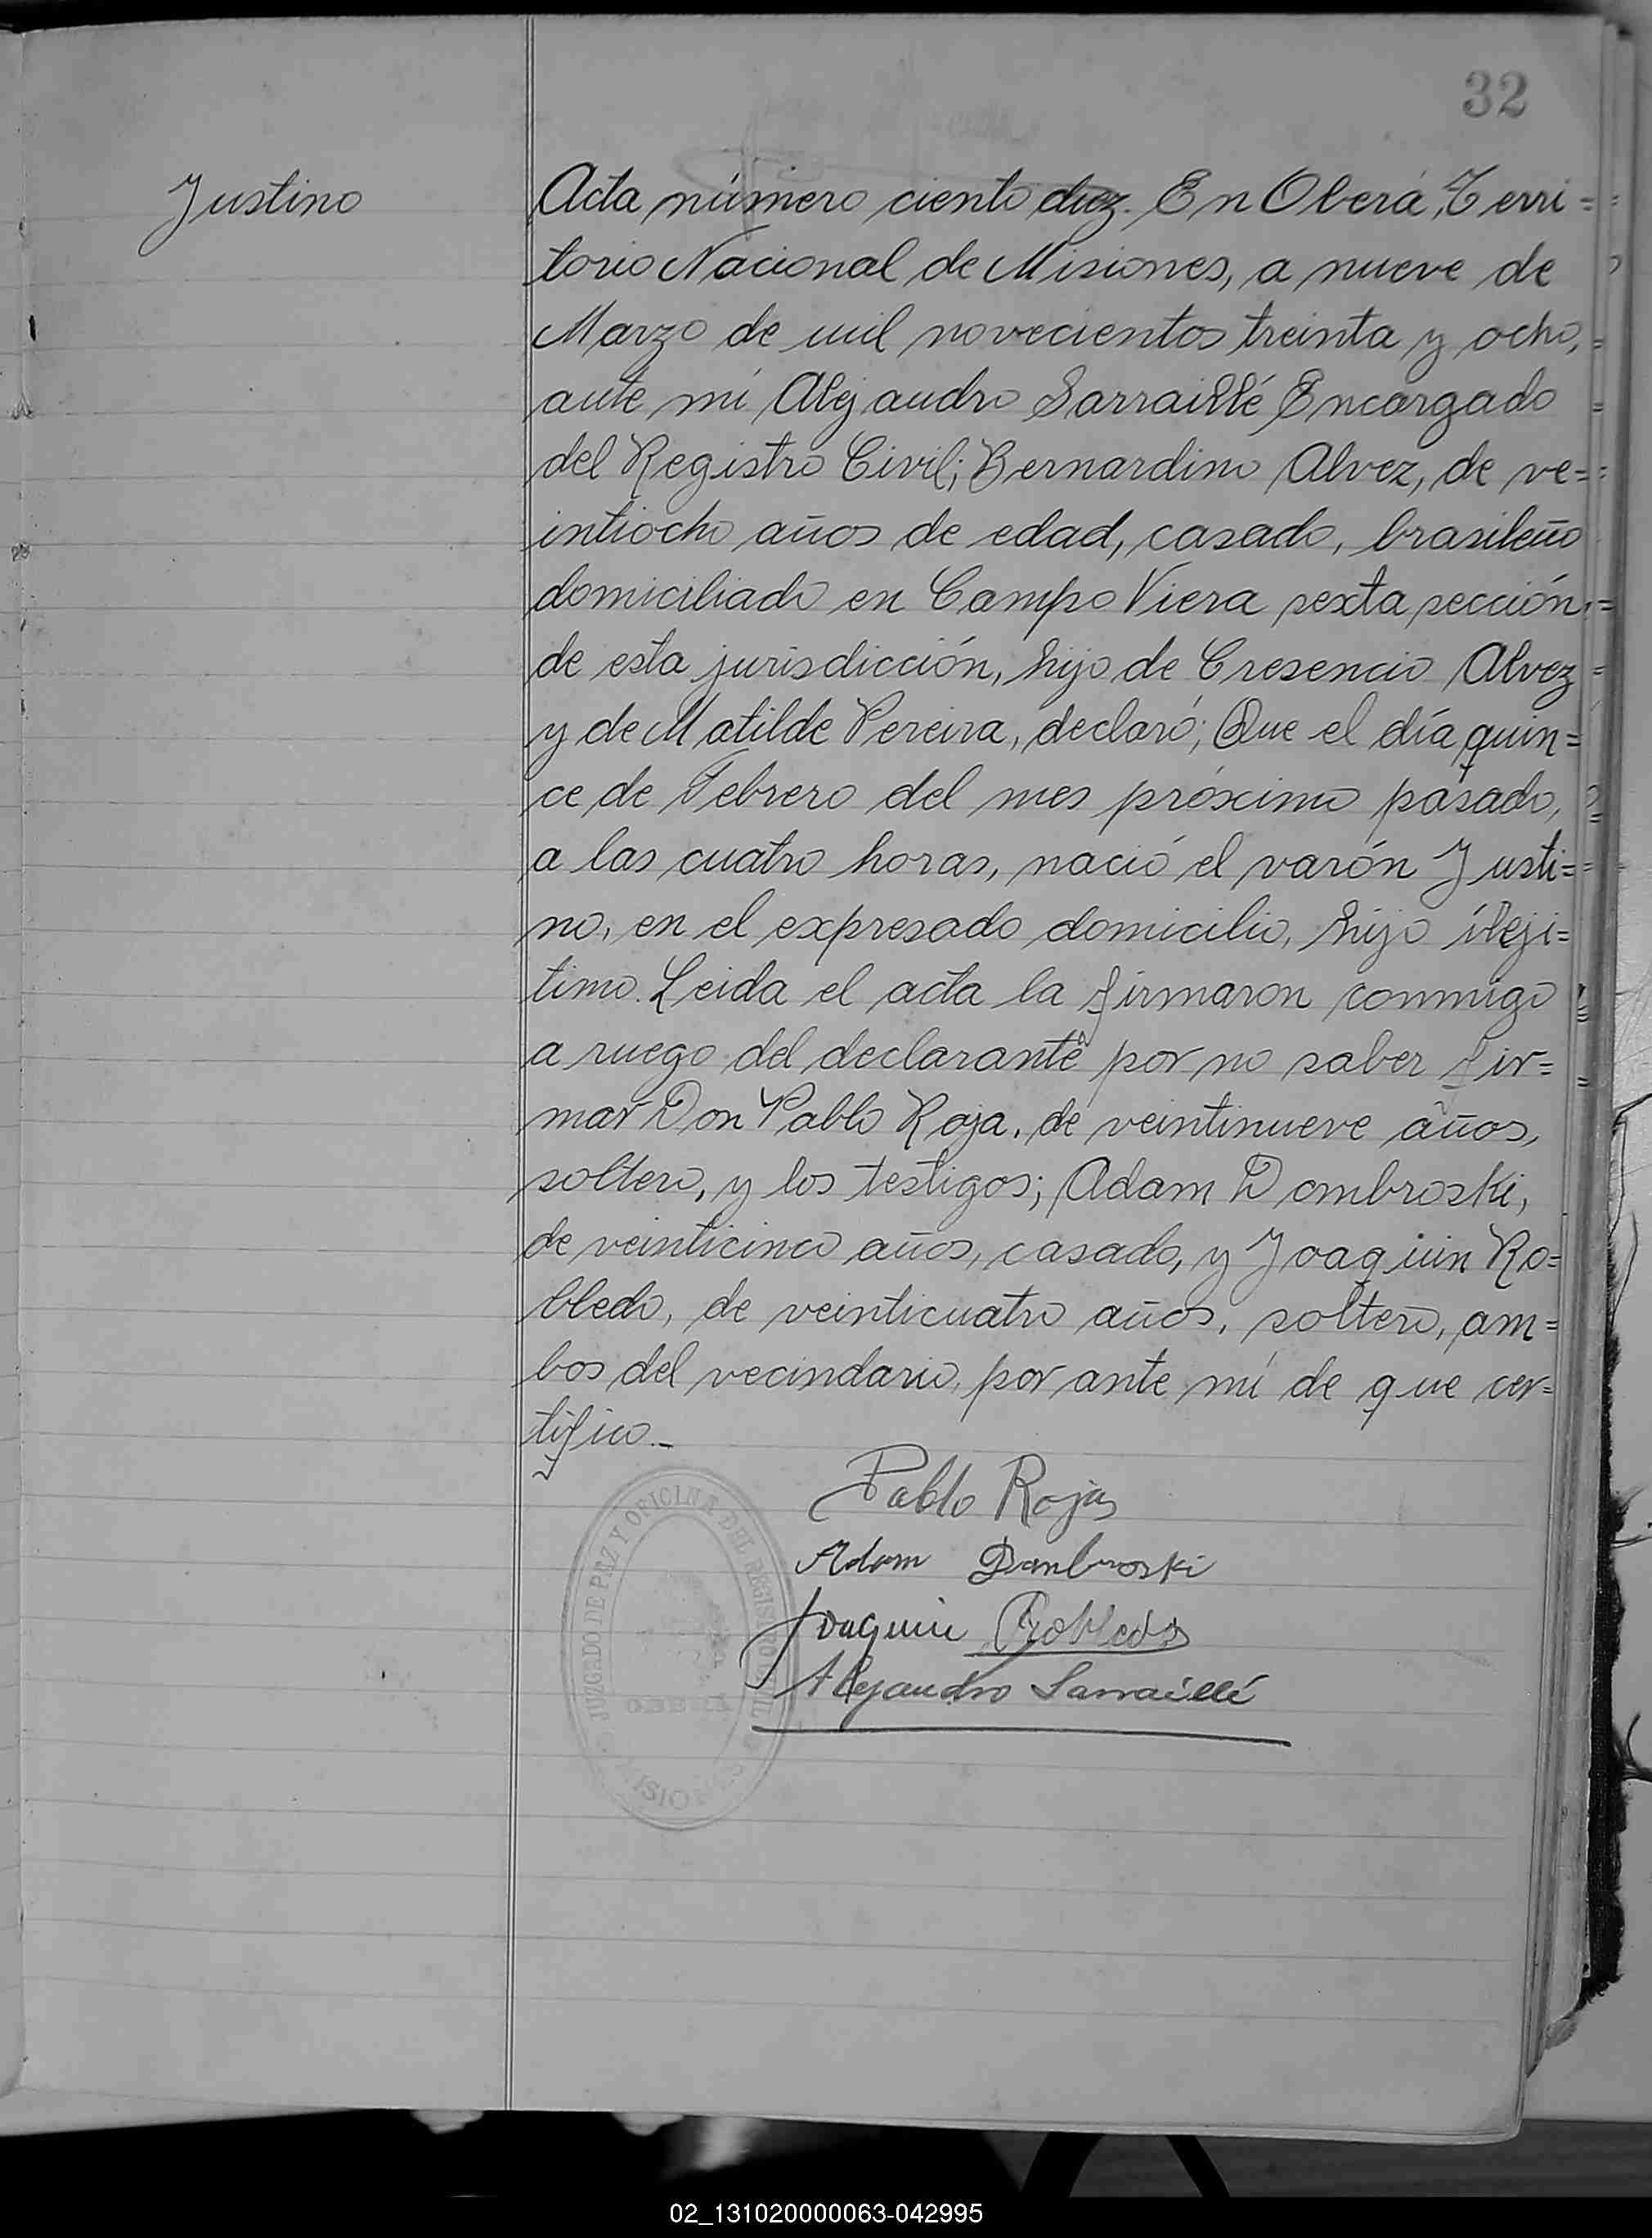 32
Justino
Acta número ciento diez. En Oberá, Terri=
torio Nacional de Misiones, a nueve de
Marzo de mil novecientos treinta y ocho,
ante mí Alejandro Sarraillé Encargado
del Registro Civil; Bernardino Alvez, de ve=
intiocho años de edad, casado, brasileño
domiciliado en Campo Viera sexta sección,
de esta jurisdicción, hijo de Cresencio Alvez
y de Matilde Pereira, declaró; Que el día quin=
ce de Febrero del mes próximo pasado,
a las cuatro horas, nació el varón Justi=
no, en el expresado domicilio, hijo ileji=
timo. Leida el acta la firmaron conmigo
a ruego del declarante por no saber fir=
mar Don Pablo Roja, de veintinueve años,
soltero, y los testigos; Adam Dombroski,
de veinticinco años, casado, y Joaquin Ro=
bledo, de veinticuatro años, soltero, am=
bos del vecindario, por ante mí de que cer=
tifico.-
Pablo Rojas
Adam Dambroski
Joaquin Robledo
Alejandro Sarraillé
JUZGADO DE PAZ Y OFICINA DEL REGISTRO CIVIL
OBERÁ
02_131020000063-042995